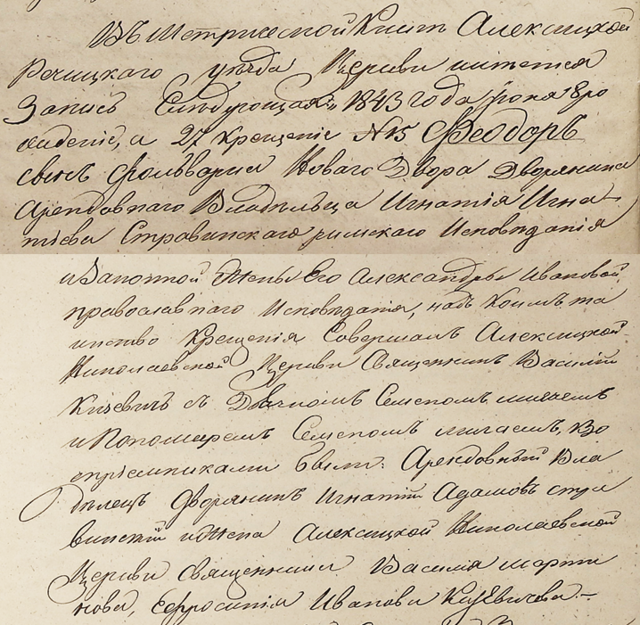 Въ Метрической Книгѣ Алексицкой
Речицкаго уѣзда Церкви имѣется
Запись Слѣдующая: 1843 года Іюня 8 ро
жденіе, а 27 крещеніе №15 Феодоръ
сынъ фольварка Новаго Двора Дворянина
Арендовнаго Владѣльца Игнатія Игна
тіева Стравинскаго римскаго Исповѣданія
и Законной Жены Его Александры Ивановой
православнаго Исповѣданія, надъ Коимъ та
инство Крещенія Совершалъ Алексицкой
Николаевской Церкви Священникъ Василій
Кицевичъ съ Дьячкомъ
и Пономаремъ Во
спріемниками были: Арендовный Вла
дѣлецъ Дворянинъ Игнатій Адамовъ Стра
винскій и Жена Алексицкой Николаевской
Церкви Священника Василія Марти
нова, Ефросинія Иванова Кицевичева.